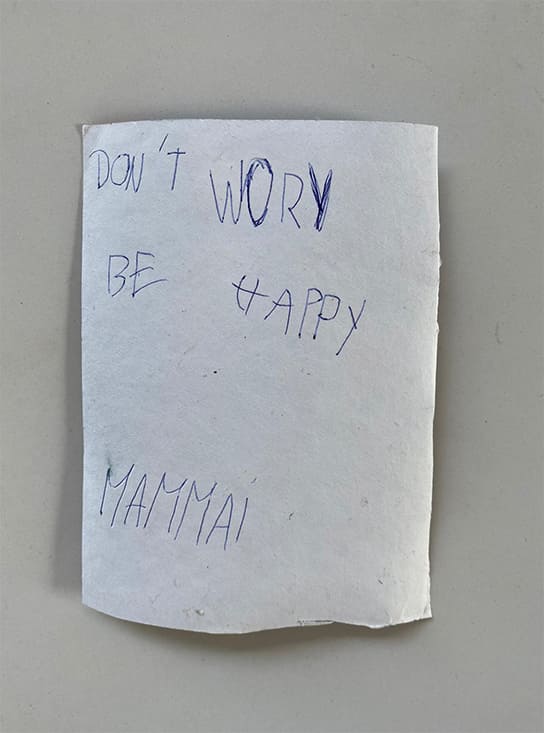 DON'T WORY
BE HAPPY
MAMMAi